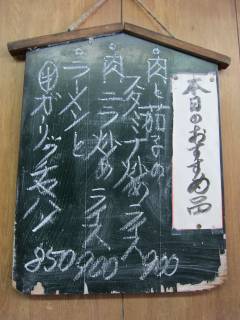 本日のおすすめ品
肉と茄子の
スタミナ炒めライス 900
肉ニラ炒めライス 900
ラーメンと
半ガーリックチャーハン 850